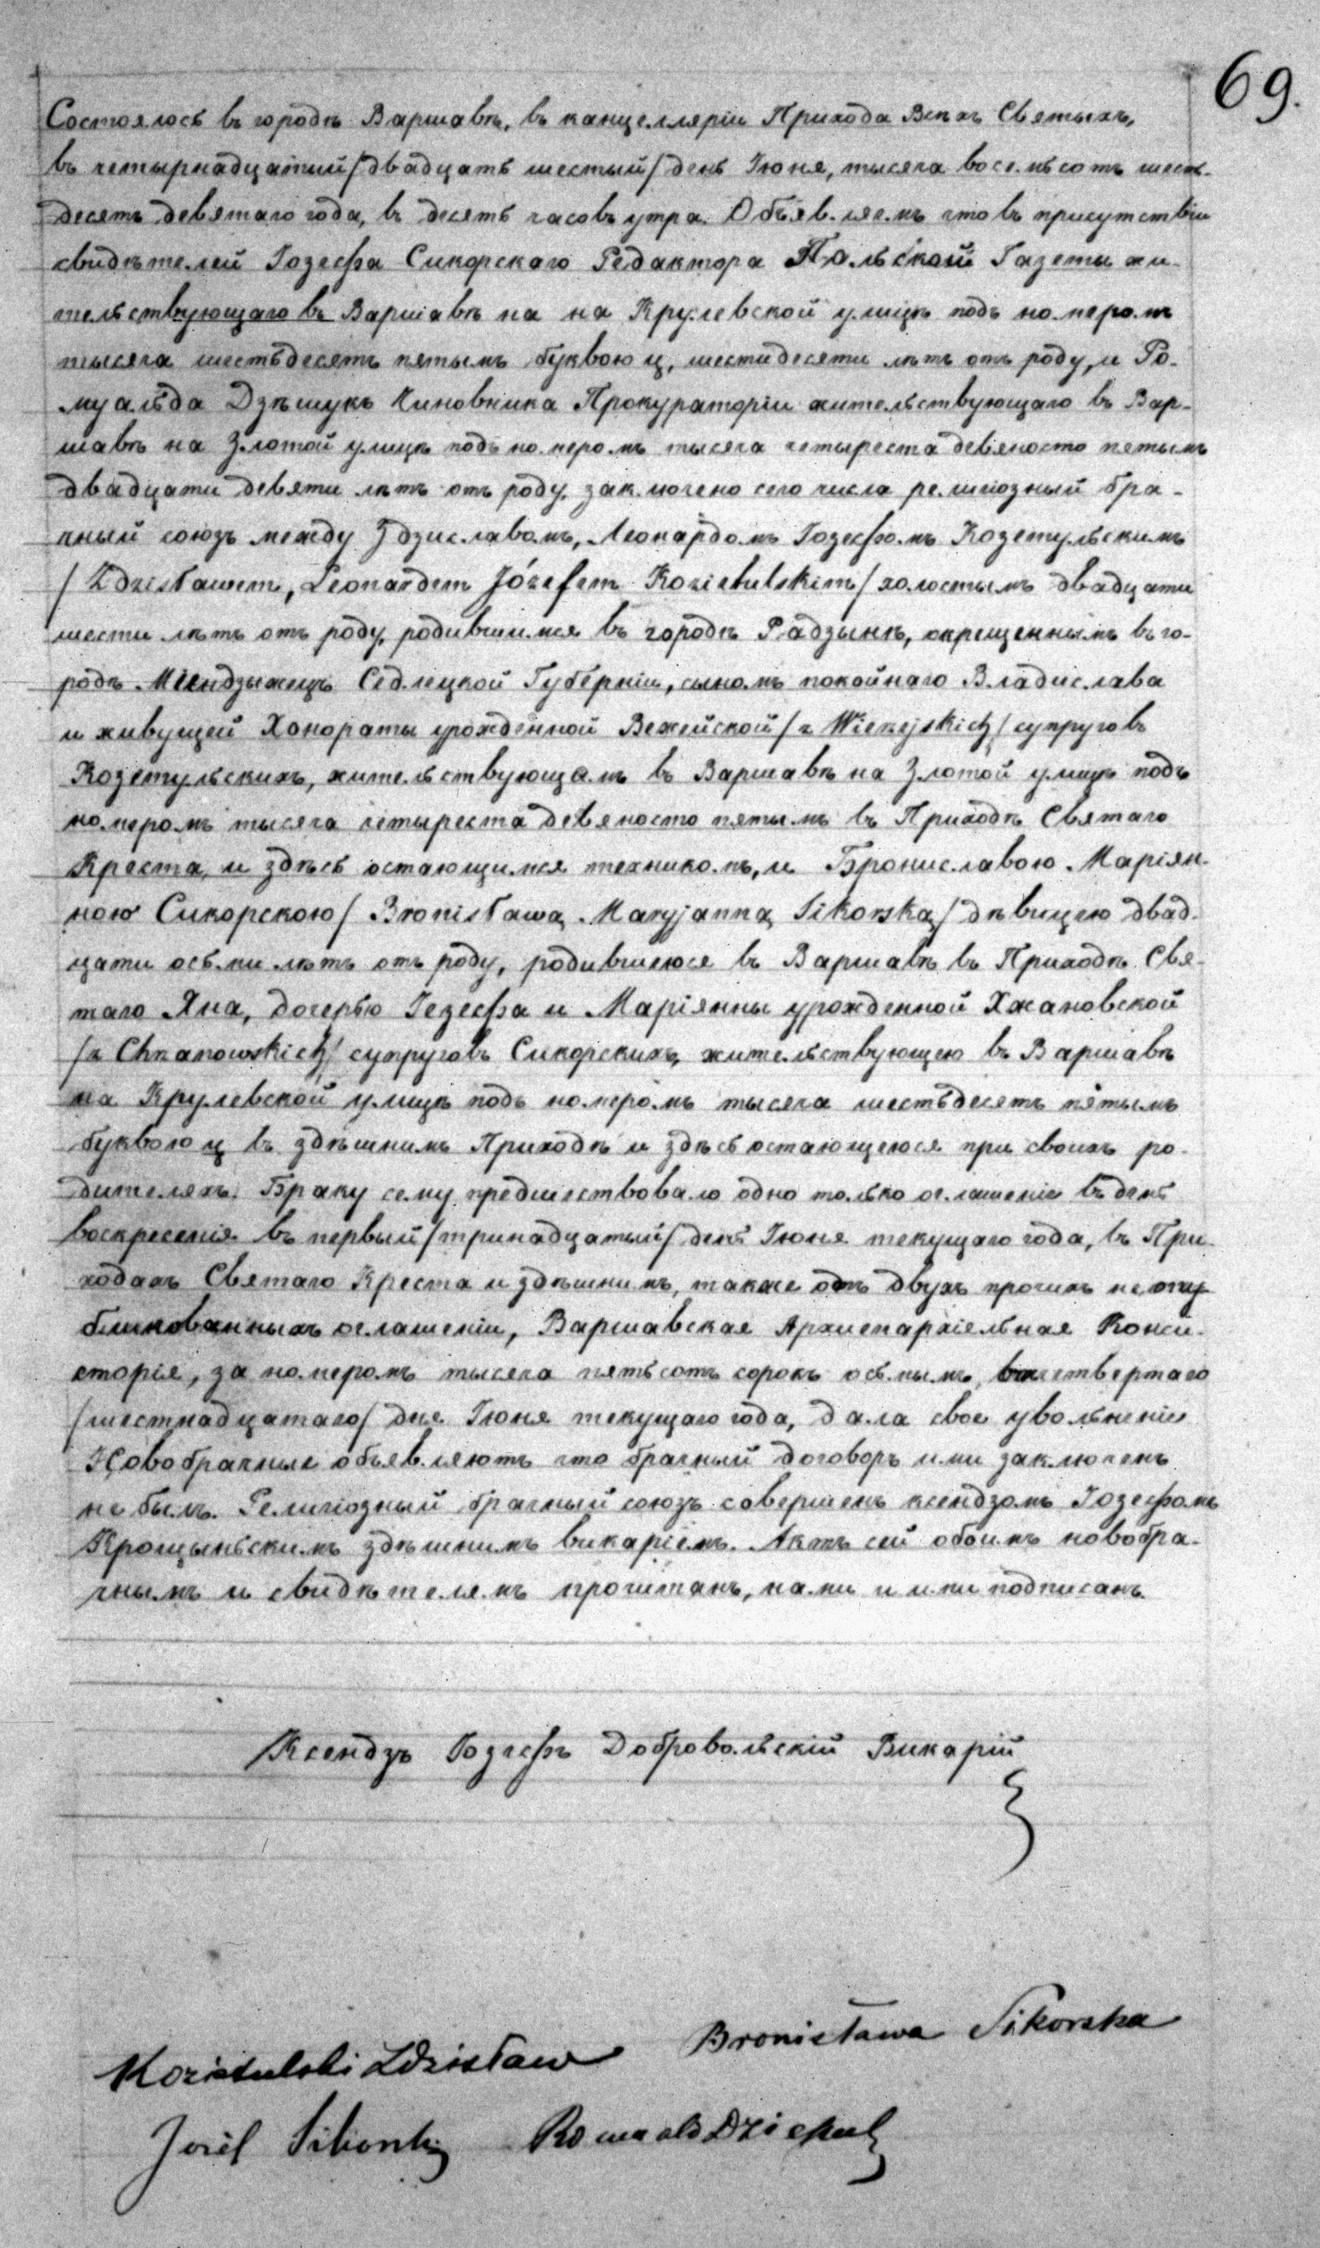 69.
Состоялось въ городѣ Варшавѣ, въ канцелляріи Прихода Всѣхъ Святыхъ,
въ четырнадцатый /двадцать шестый/ день Іюня, тысяча восемьсотъ шесть-
десятъ девятаго года, въ десять часовъ утра. Объявляемъ что въ присутствіи
свидѣтелей Іозефа Сикорскаго Редактора Польской Газеты жи-
тельствующаго въ Варшавѣ на на Крулевской улицѣ подъ номеромъ
тысяча шестьдесятъ пятымъ буквою ц, шестидесяти лѣтъ отъ роду, и Ро-
муальда Дзѣшукъ Чиновника Прокураторіи жительствующаго въ Вар-
шавѣ на Злотой улицѣ подъ номеромъ тысяча четыреста девяносто пятымъ
двадцати девяти лѣтъ отъ роду, заключено сего числа религіозный бра-
чный союзъ между Здзиславомъ, Леонардомъ Іозефомъ Козетульскимъ
/Zdzisławem, Leonardem Józefem Kozietulskim/ холостымъ двадцати
шести лѣтъ отъ роду, родившимся въ городѣ Радзынѣ, окрещеннымъ въ го-
родѣ Мендзыжецъ Седлецкой Губерніи, сыномъ покойнаго Владислава
и живущей Хонораты урожденной Вежейской /z Wierzejskich/ супруговъ
Козетульскихъ, жительствующемъ въ Варшавѣ на Злотой улицѣ подъ
номеромъ тысяча четыреста девяносто пятымъ въ Приходѣ Святаго
Креста, и здѣсь остающимся техникомъ, и Брониславою Маріян-
ною Сикорскою /Bronisławą Maryjanną Sikorską/ дѣвицею двад-
цати осьми лѣтъ отъ роду, родившеюся въ Варшавѣ въ Приходѣ Свя-
таго Яна, дочерью Іезефа и Маріянны урожденной Хжановской
/z Chrzanowskich/ супруговъ Сикорскихъ, жительствующею въ Варшавѣ
на Крулевской улицѣ подъ номеромъ тысяча шестьдесятъ пятымъ
буквою ц въ здѣшнимъ Приходѣ и здѣсь остающеюся при своихъ ро-
дителяхъ. Браку сему предшествовало одно только оглашеніе въ день
воскресенія въ первый /тринадцатый/ день Іюня текущаго года, въ При-
ходахъ Святаго Креста и здѣшнимъ, также отъ двухъ прочихъ неопу-
бликованныхъ оглашеніи, Варшавская Архиепархіяльная Конси-
сторія, за номеромъ тысяча пятьсотъ сорокъ осьмымъ, четвертаго
/шестнадцатаго/ дня Іюня текущаго года, дала свое увольненіе
Новобрачные объявляютъ что брачный договоръ ими заключенъ
не былъ. Религіозный брачный союзъ совершенъ ксендзомъ Іозефомъ
Крощыньскимъ здѣшнимъ викаріемъ. Актъ сей обоимъ новобра-
чнымъ и свидѣтелямъ прочитанъ, нами и ими подписанъ.
Ксендзъ Іозефъ Добровольскій Викарій
Bronisława Sikorska
Kozietulski Zdzisław
Józef Sikorski Romuald Dzieszuk